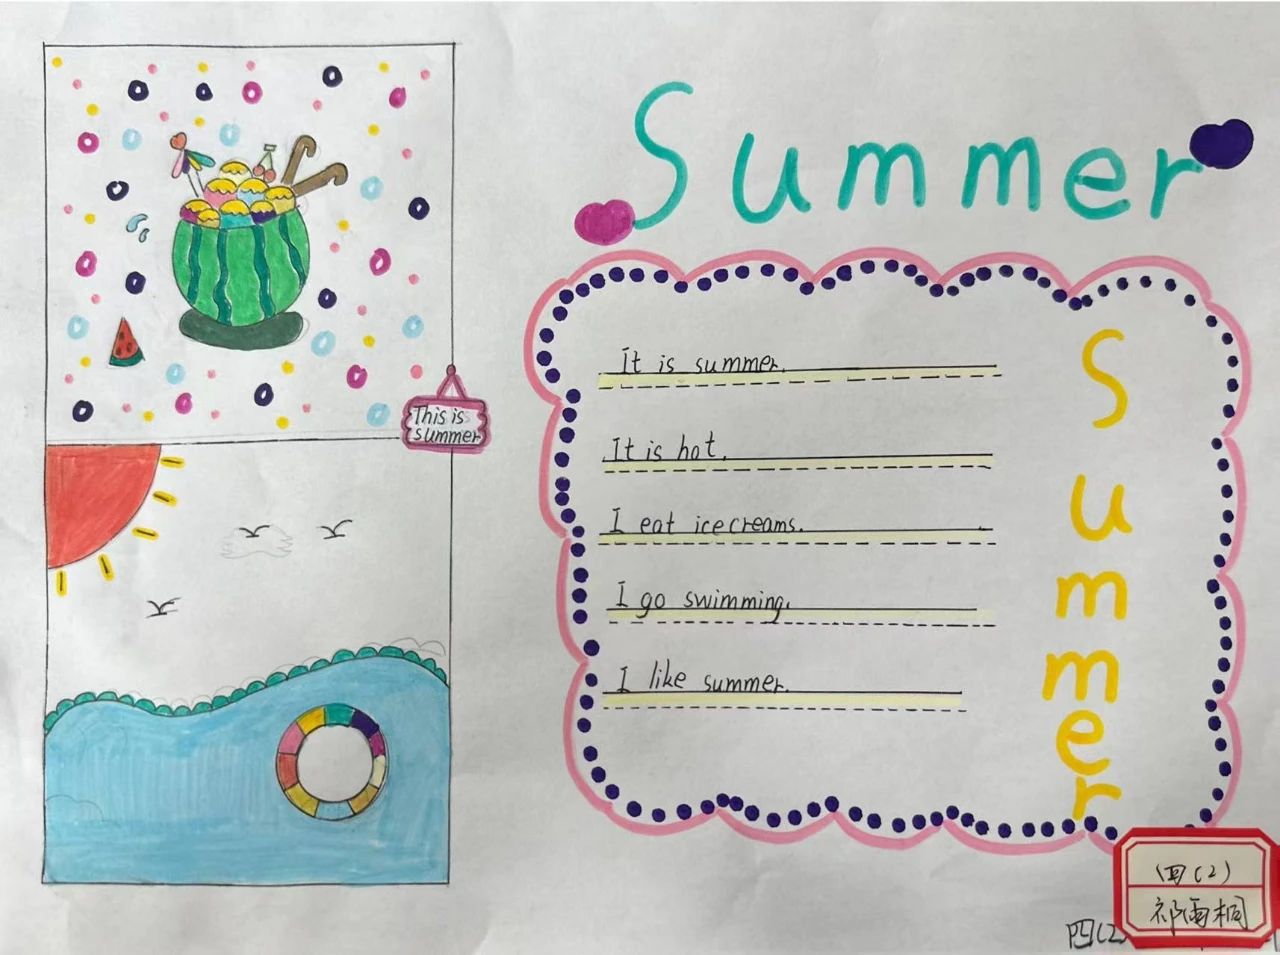 Summer
It is summer.
It is hot.
I eat icecreams.
I go swimming.
I like summer.
Summer
This is
summer
四(2)
祁雨桐
四(2)